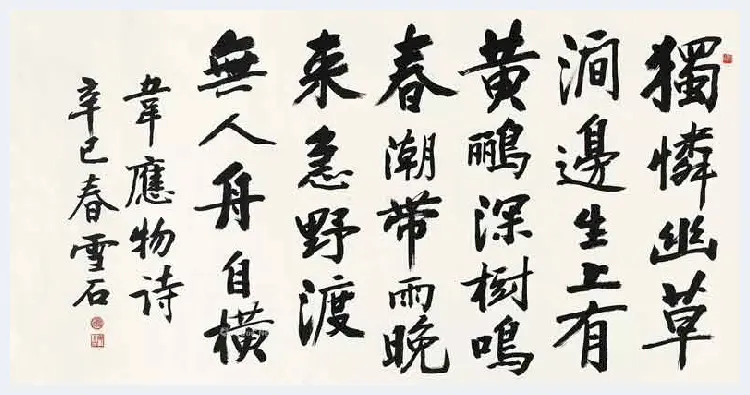 獨憐幽草
澗邊生上有
黄鸝深樹鳴
春潮帶雨晚
来急野渡
無人舟自橫
韋應物诗
辛巳春雪石